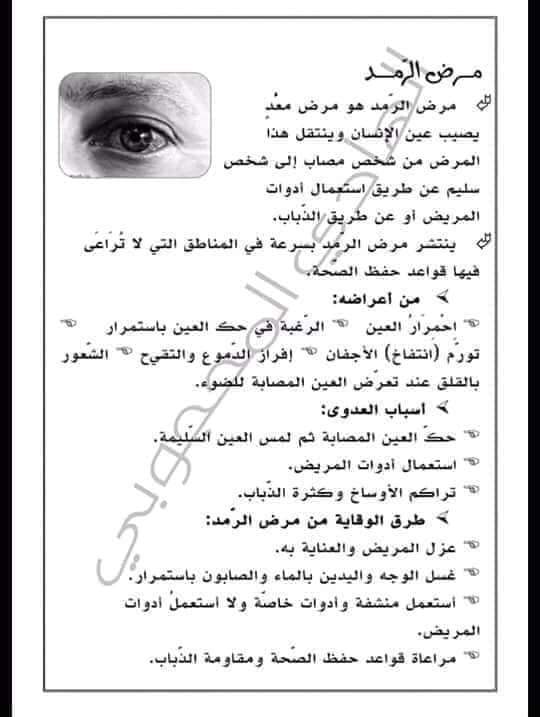 مرض الرّمد
مرض الرّمد هو مرض معُدٍ
يصيب عين الإنسان وينتقل هذا
المرض من شخص مصاب إلى شخص
سليم عن طريق استعمال أدوات
المريض أو عن طريق الذّباب.
ينتشر مرض الرمّد بسرعة في المناطق التي لا تُرَاعَى
فيها قواعد حفظ الصّحة.
من أعراضه:
اِحْمِرَارُ العين الرّغبة في حك العين باستمرار
تورّم (اِنتفاخ) الأجفان إفراز الدّموع والتقيّح الشّعور
بالقلق عند تعرّض العين المصابة للضوء.
أسباب العدوى:
حكّ العين المصابة ثم لمس العين السّليمة.
استعمال أدوات المريض.
تراكم الأوساخ وكثرة الذّباب.
طرق الوقاية من مرض الرّمد:
عزل المريض والعناية به.
غسل الوجه واليدين بالماء والصابون باستمرار.
أستعمل منشفة وأدوات خاصّة ولا أستعملُ أدوات
المريض.
مراعاة قواعد حفظ الصّحة ومقاومة الذّباب.